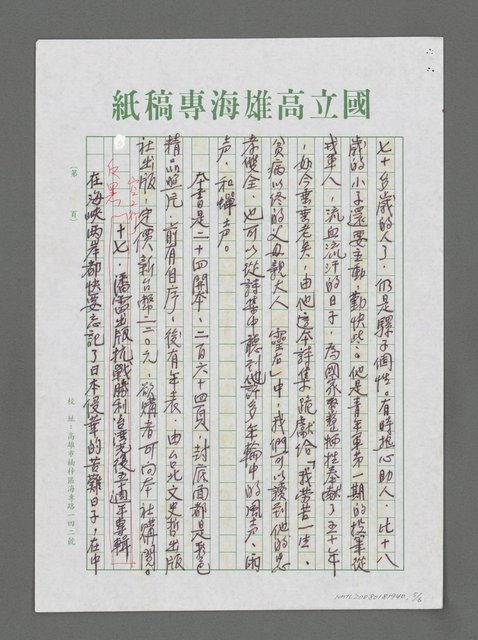 國立高雄海專稿紙
七十多歲的人了，仍是驃子個性。有時挑心助人，比十八
歲的小子還要主動，勤快些。他是青年軍第一期的投筆從
戎軍人，流血流汗的日子，為國家整整犧牲奉獻了五十年
，如今垂垂老矣，由他這本詩集跪獻給「我勞苦一生，
貧病以終的父母親大人（靈右）」中，我們可以讀到他的忠
孝雙全，也可以從詩集中聽到他許多年輪中的風声、雨
声、和蟬声。
本書是二十四開本，二百六十四頁，封底面都是彩色
精品照片，前有自序，後有年表，由台北文史哲出版
社出版，定價新台幣二二〇元，欲購者可向本社購買。
十七、潘雷出版抗戰勝利台灣光復五十週年專輯
在海峽兩岸都快要忘記了日本侵華的苦難日子，在中
〔第　頁〕
校址：高雄市楠梓區海專路一四二號
NMTL20080181940, 5/6